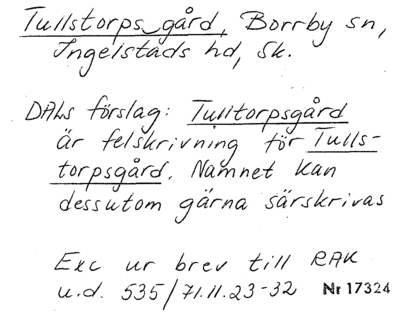 Tullstorps gård, Borrby sn,
Ingelstads hd, Sk.
DALs förslag: Tulltorpsgård
är felskrivning för Tulls-
torpsgård. Namnet kan
dessutom gärna särskrivas
Exc ur brev till RAK
u.d. 535/71.11.23-32 Nr 17324